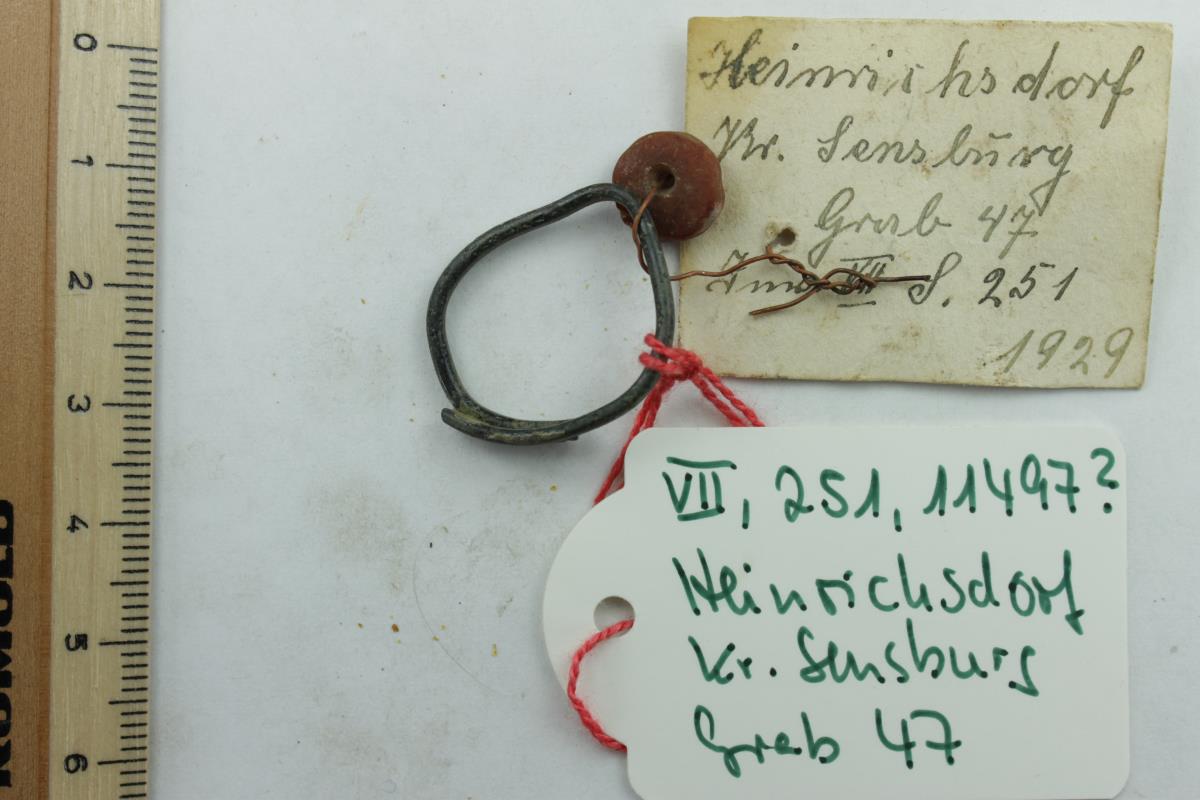 0
1
2
3
4
5
6
Heinrichsdorf
Kr. Sensburg
Grab 47
VII S. 251
1929
VII, 251, 11497?
Heinrichsdorf
Kr. Sensburg
Grab 47